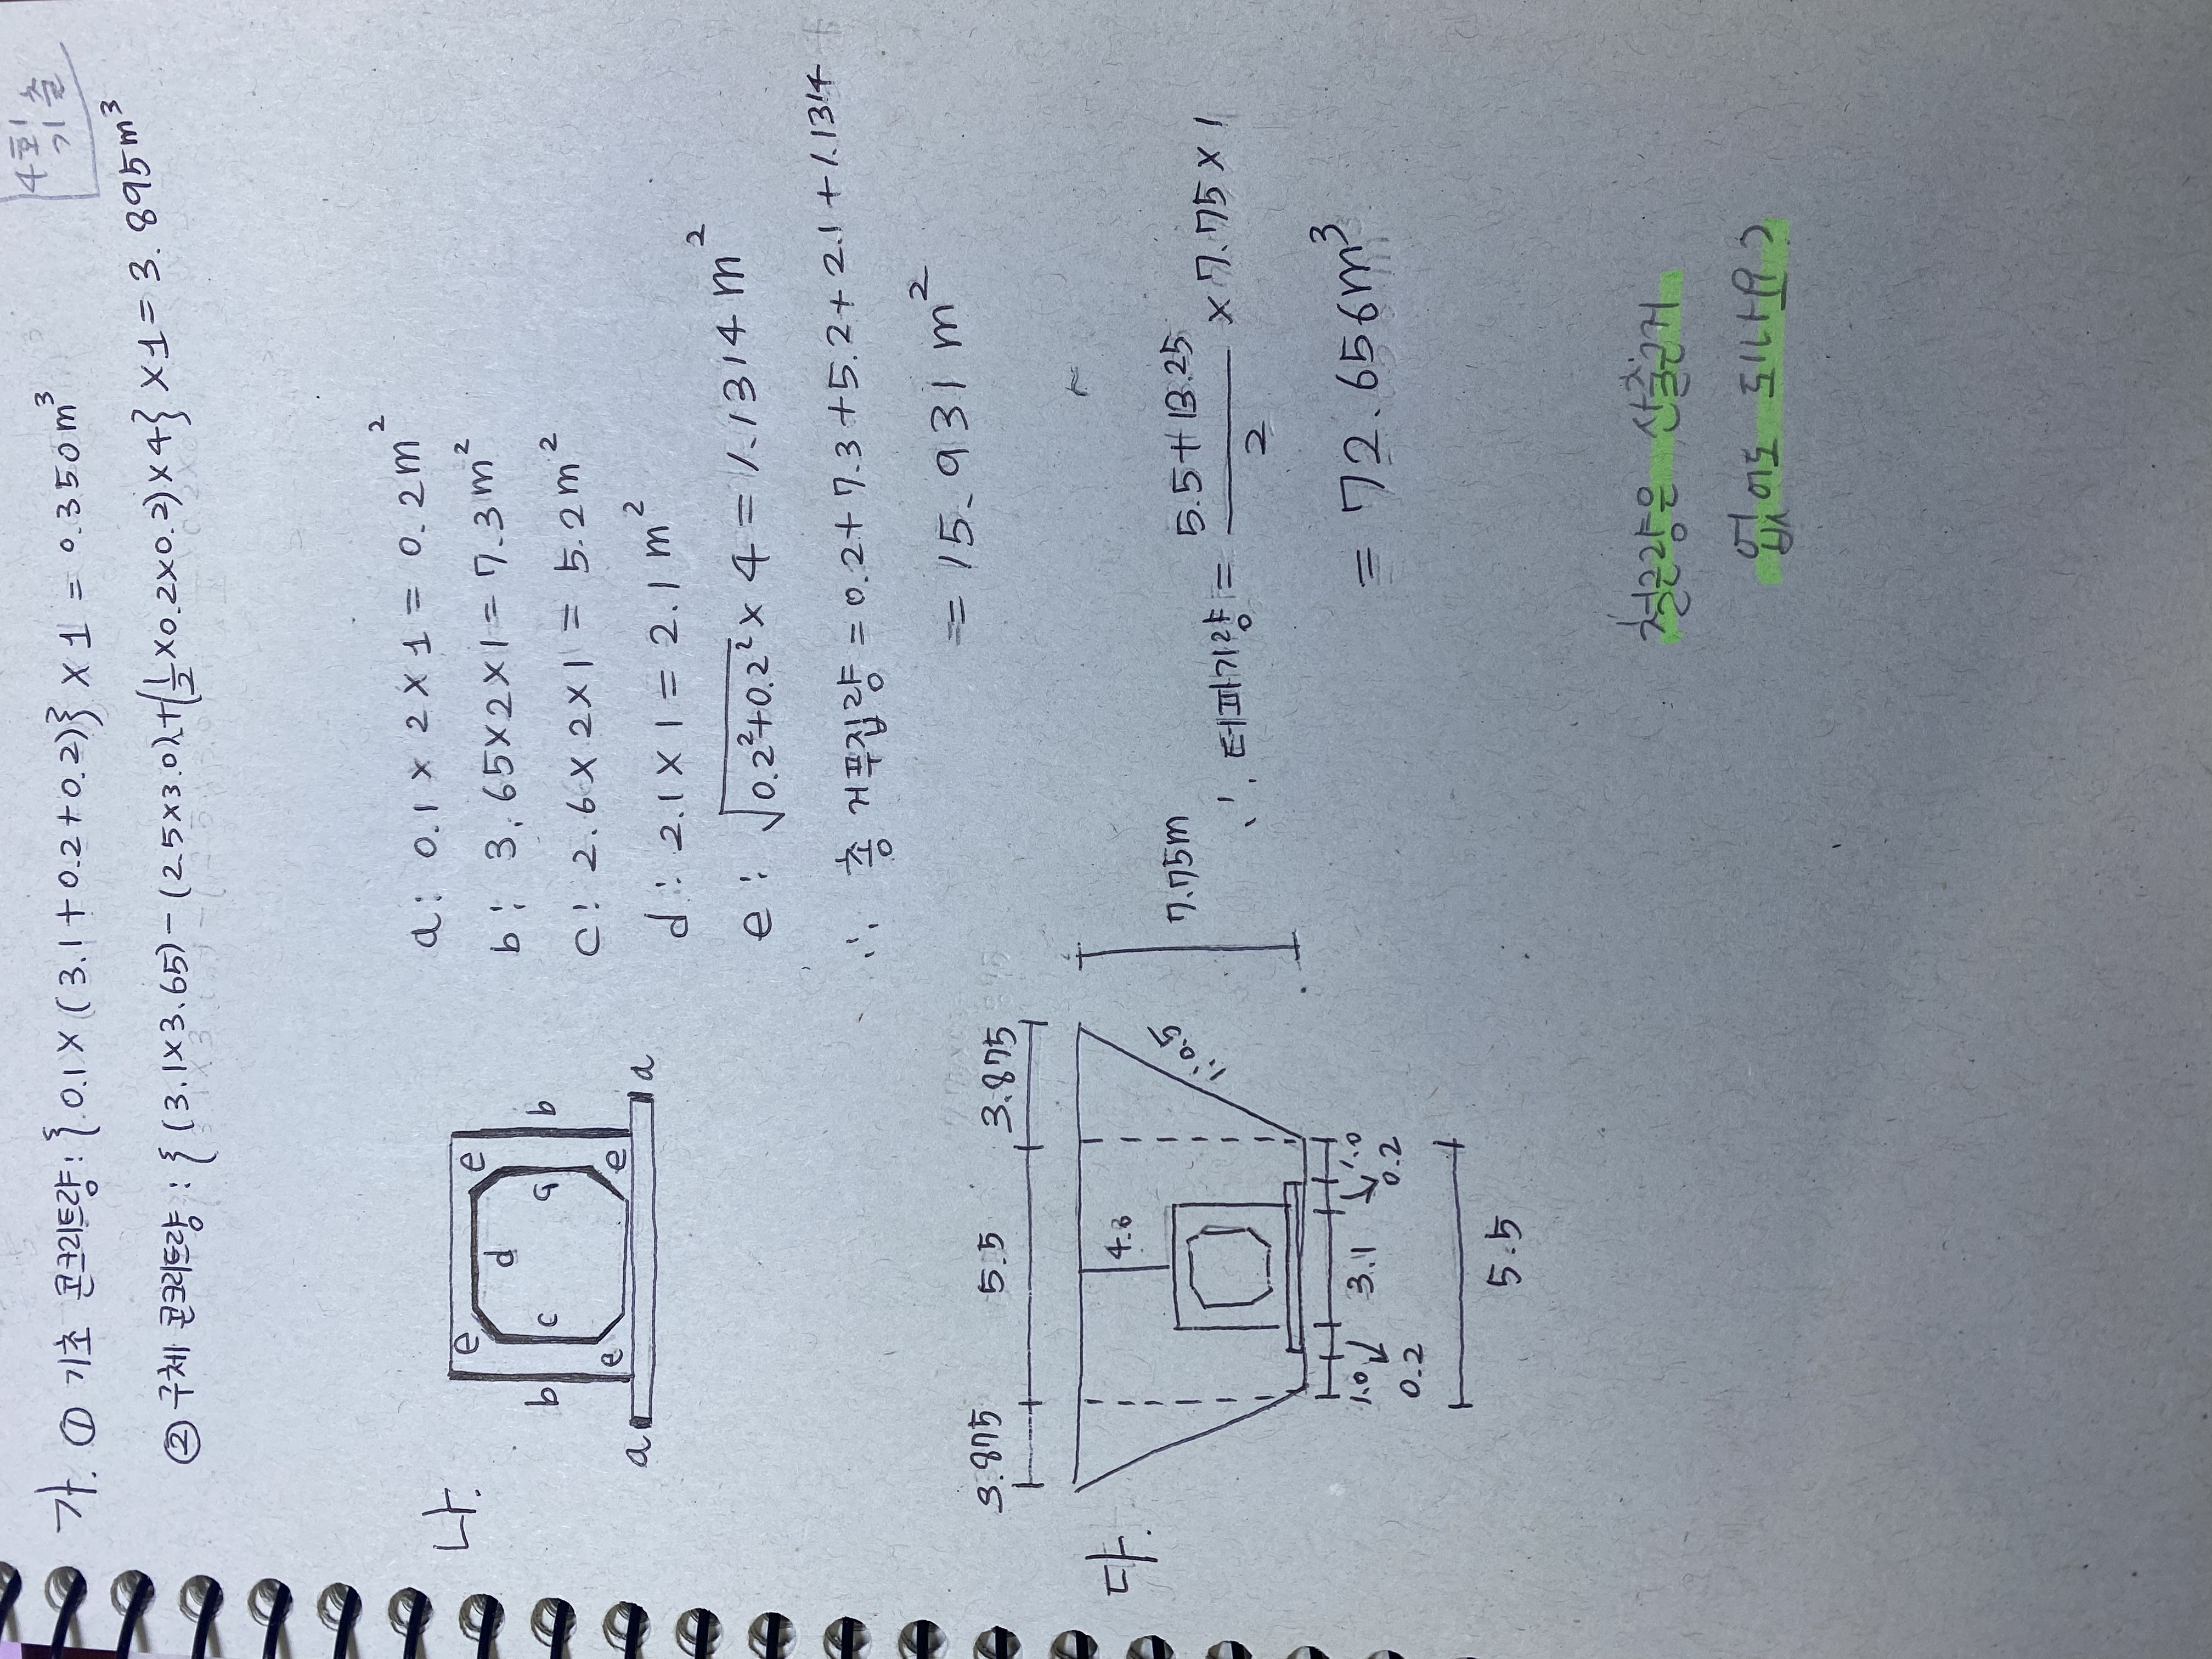 4회 기출
가. ① 기초 콘크리트량: {0.1×(3.1+0.2+0.2)}×1=0.350m³
② 구체 콘크리트량: {(3.1×3.65)-(2.5×3.0)+(½×0.2×0.2)×4}×1=3.895m³
나.
e e
b c d G b
e e
a a
a: 0.1×2×1=0.2m²
b: 3.65×2×1=7.3m²
c: 2.6×2×1=5.2m²
d: 2.1×1=2.1m²
e: √0.2²+0.2² ×4=1.1314m²
∴ 총 거푸집량=0.2+7.3+5.2+2.1+1.1314
=15.931m²
다.
3.875 5.5 3.875
4.0
1:0.5
7.75m
1.0 3.1 1.0
0.2 0.2
5.5
∴ 터파기량= 5.5+13.25 / 2 ×7.75×1
=72.656m³
철근량은 산출근거
없어도 되나요?